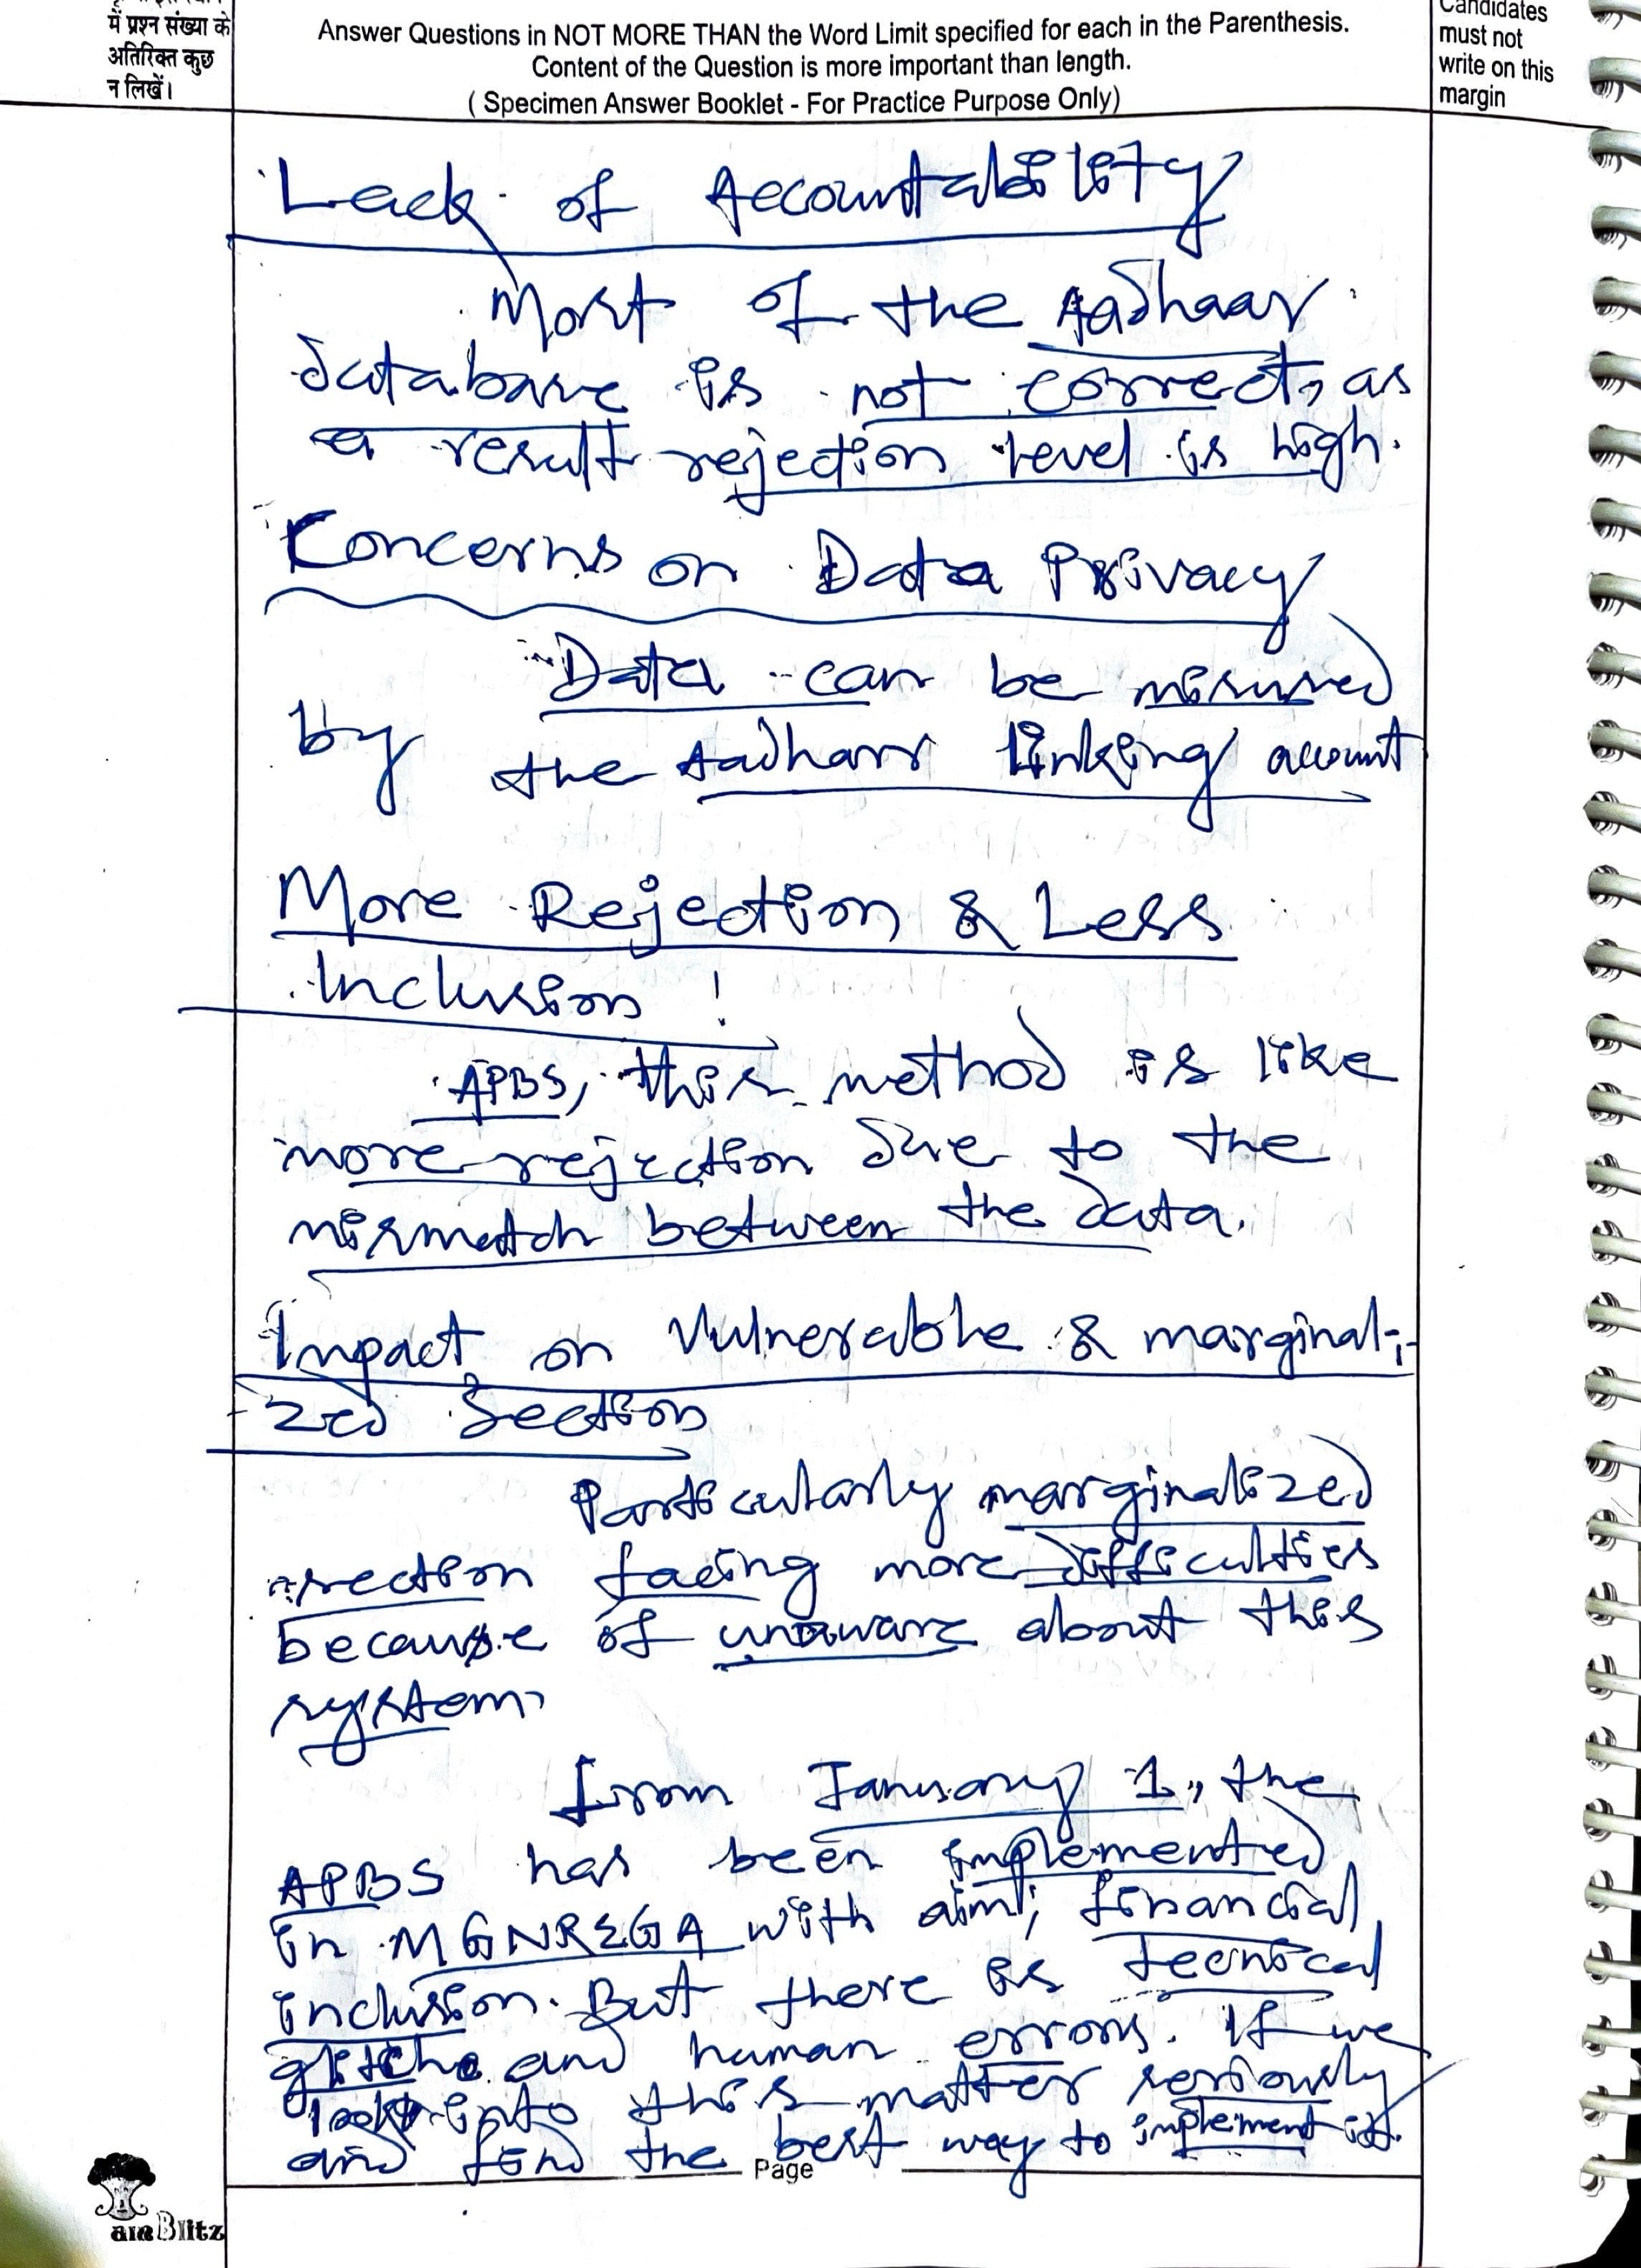 में प्रश्न संख्या के
अतिरिक्त कुछ
न लिखें।
Answer Questions in NOT MORE THAN the Word Limit specified for each in the Parenthesis.
Content of the Question is more important than length.
( Specimen Answer Booklet - For Practice Purpose Only)
Candidates
must not
write on this
margin
Lack of Accountability
Most of the Aadhaar
database is not correct, as
a result rejection level is high.
Concerns on Data Privacy
Data can be misused
by the Aadhaar linking account
More Rejection & Less
Inclusion !
APBS, this method is like
more rejection due to the
mismatch between the data.
Impact on Vulnerable & marginali-
zed Section
Particularly marginalized
section facing more difficulties
because of unaware about this
system.
From January 1, the
APBS has been implemented
in MGNREGA with aim; financial
inclusion. But there is Tecnical
glitche and human errors. If we
look into this matter seriously
and find the best way to implement it.
Page
Blitz